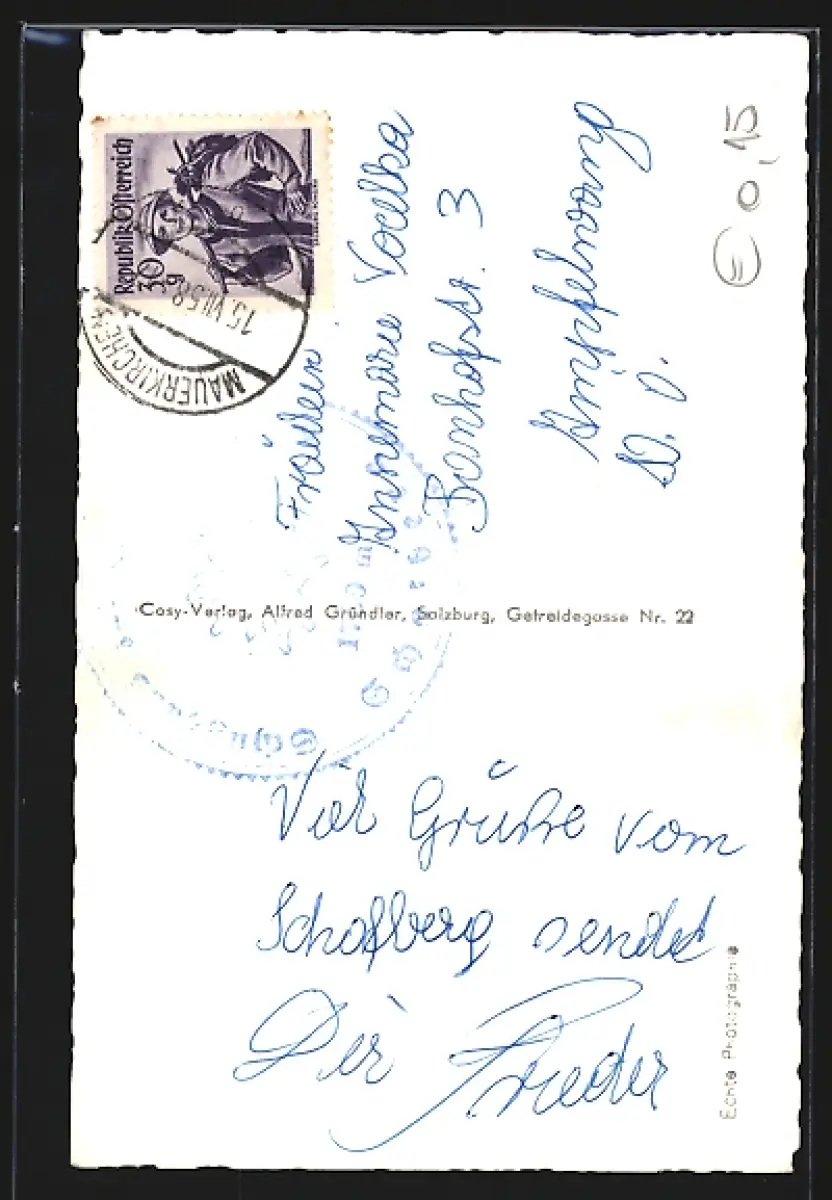 Republik Österreich
30 g
15.VII.58
MAUERKIRCHEN
Fräulein
Annemarie Voelka
Banhofstr. 3
Ampfelwang
O. Ö.
€ 0,15
Cosy-Verlag, Alfred Gründler, Salzburg, Getreidegasse Nr. 22
Viel Grüße vom
Schafberg sendet
Dir
Echte Photographie